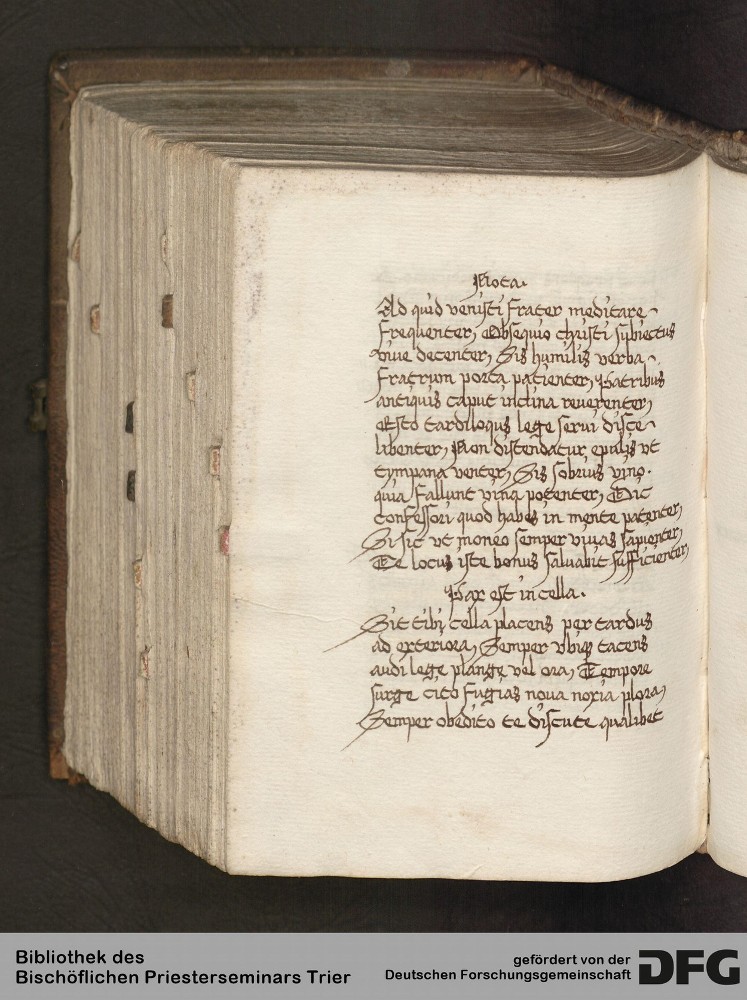 Nota.
Ad quid venisti frater meditare
frequenter, Obsequio christi subiectus
viue decenter, Sis humilis verba
fratrum porta patienter, Patribus
antiquis caput inclina reuerenter,
Esto tardiloqus lege serui disce
libenter, Non distendatur epulis vt
tympana venter, Sis sobrius vino.
quia fallunt vina potenter, Dic
confessori quod habes in mente patenter,
Si sic vt moneo semper viuas sapienter,
Te locus iste bonus saluabit sufficienter,
Pax est in cella.
Sit tibi cella placens per tardus
ad exteriora, Semper vbiq tacens
audi lege plange vel ora, Tempore
surge cito fugias noua noxia plora,
Semper obedito te discute qualibet
Bibliothek des
Bischöflichen Priesterseminars Trier
gefördert von der
Deutschen Forschungsgemeinschaft
DFG